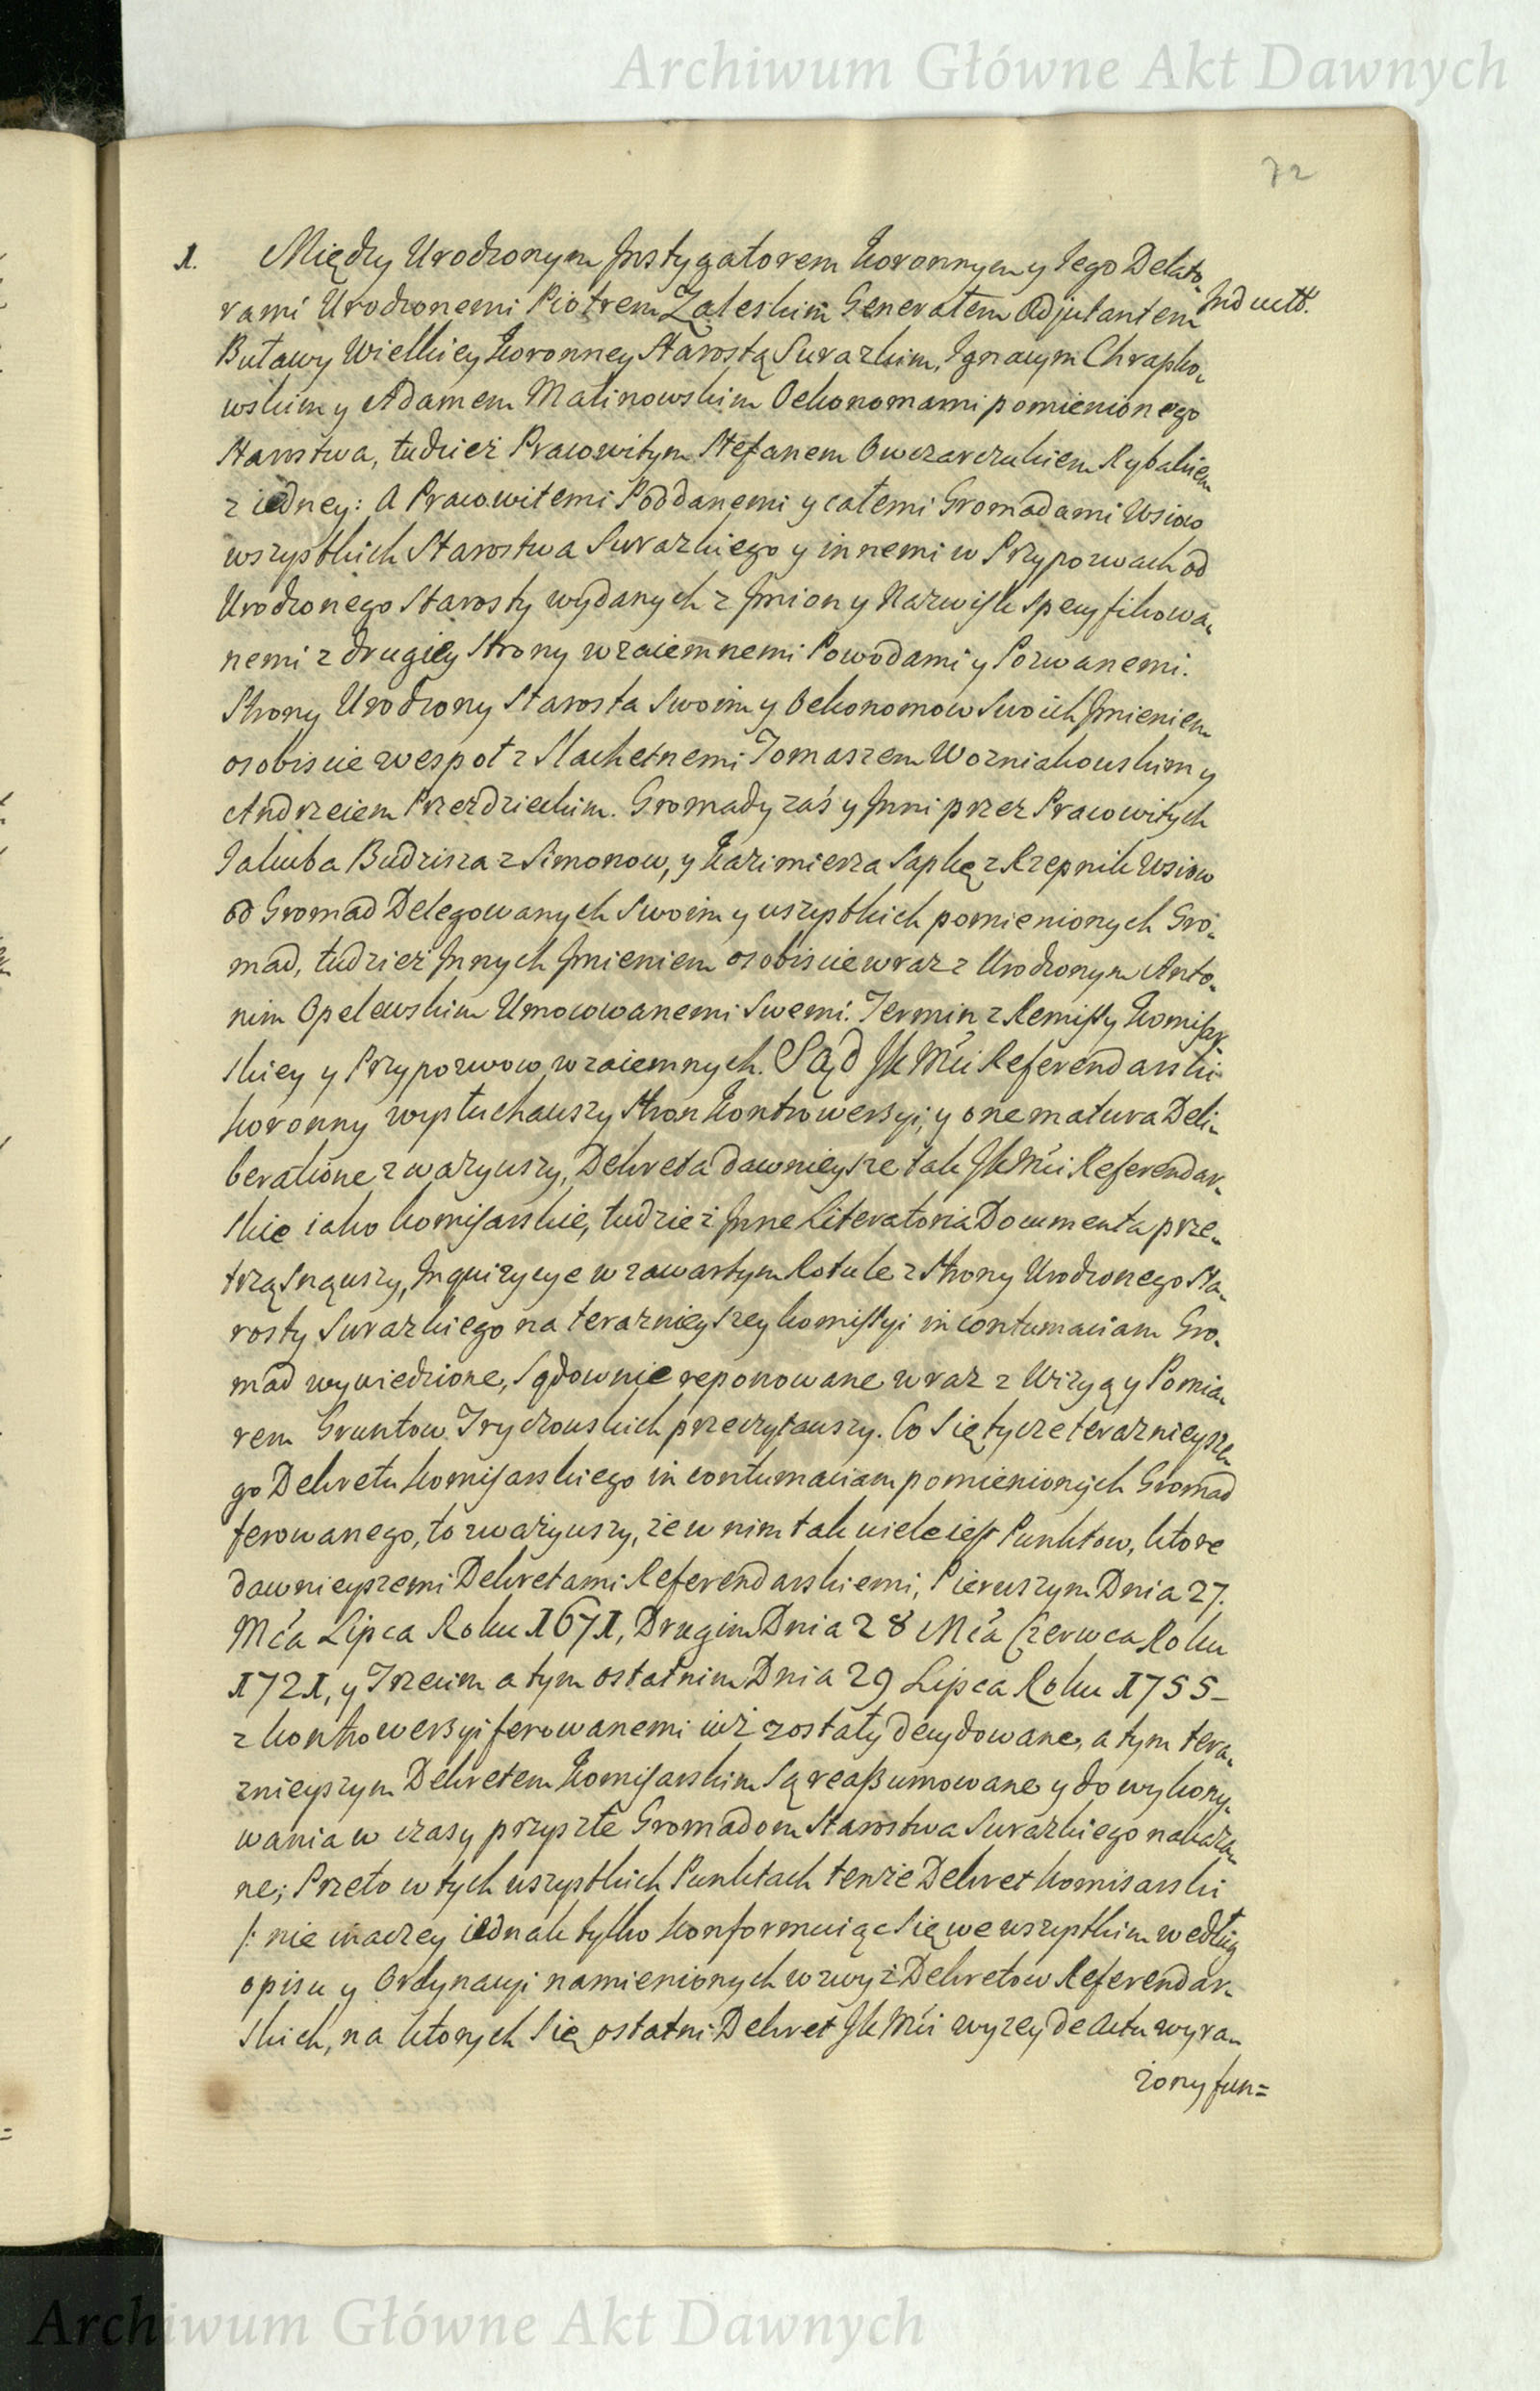 Archiwum Główne Akt Dawnych
72
1. Między Urodzonym Instygatorem Koronnym y Iego Delato-
rami Urodzonemi Piotrem Zaleskim Generałem Adjutantem
Buławy Wielkiey Koronney Starostą Surazkim, Ignacym Chrapko-
wskim y Adamem Malinowskim Oekonomami pomienionego
Starostwa, tudzież Pracowitym Stefanem Owczarczukiem Rybakiem
z iedney: A Pracowitemi Poddanemi y całemi Gromadami Wsiow
wszystkich Starostwa Surazkiego y innemi w Przypozwach od
Urodzonego Starosty wydanych z Imion y Nazwisk specyfikowa-
nemi z drugiey strony wzaiemnemi Powodami y Pozwanemi.
Strony Urodzony Starosta Swoim y Oekonomow Swoich Imieniem
osobiscie wespoł z Slachetnemi Tomaszem Wozniakowskim y
Andrzeiem Przezdzieckim. Gromady zaś y Inni przez Pracowitych
Iakuba Budzisza z Simonow, y Kazimierza Sapkę z Rzepnik Wsiow
od Gromad Delegowanych Swoim y wszystkich pomienionych Gro-
mad, tudzież Innych Imieniem osobiscie wraz z Urodzonym Anto-
nim Opelewskim Umocowanemi Swemi. Termin z Remissy Komissar
skiey y Przypozwow wzaiemnych. Sąd JK Mci Referendarski
Koronny wysłuchawszy Stron Kontrowersyi, y one matura Deli-
beratione zważywszy, Dekreta dawnieysze tak JK Mci Referendar-
skie iako Komisarskie, tudzież Inne Literatoria Documenta prze-
trząsnąwszy, Inquizycye w zawartym Rotule z Strony Urodzonego Sta-
rosty Surazkiego na teraznieyszey Komissyi in contumaciam Gro-
mad wywiedzione, Sądownie reponowane wraz z Wizyą y Pomia-
rem Gruntow Tryczowskich przeczytawszy. Co się tycze teraznieysze-
go Dekretu Komisarskiego in contumaciam pomienionych Gromad
ferowanego, to zważywszy, że w nim tak wiele iest Punktow, ktore
dawnieyszemi Dekretami Referendarskiemi, Pierwszym Dnia 27.
Mca Lipca Roku 1671, Drugim Dnia 28 Mca Czerwca Roku
1721, y Trzecim a tym ostatnim Dnia 29 Lipca Roku 1755-
z kontrowersyi ferowanemi iuż zostały decydowane, a tym tera-
znieyszym Dekretem Komisarskim Są reassumowane y do wykony-
wania w czasy przyszłe Gromadom Starostwa Surazkiego nakaza-
ne; Przeto w tych wszystkich Punktach tenże Dekret Komisarski
/: nie inaczey iednak tylko konformuiąc Się we wszystkim według
opisu y Ordynacyi namienionych wzwyż Dekretow Referendar-
skich, na ktorych Się ostatni Dekret JK Mci wyzey de Actu wyra-
żony fun=
Induct.
Archiwum Główne Akt Dawnych